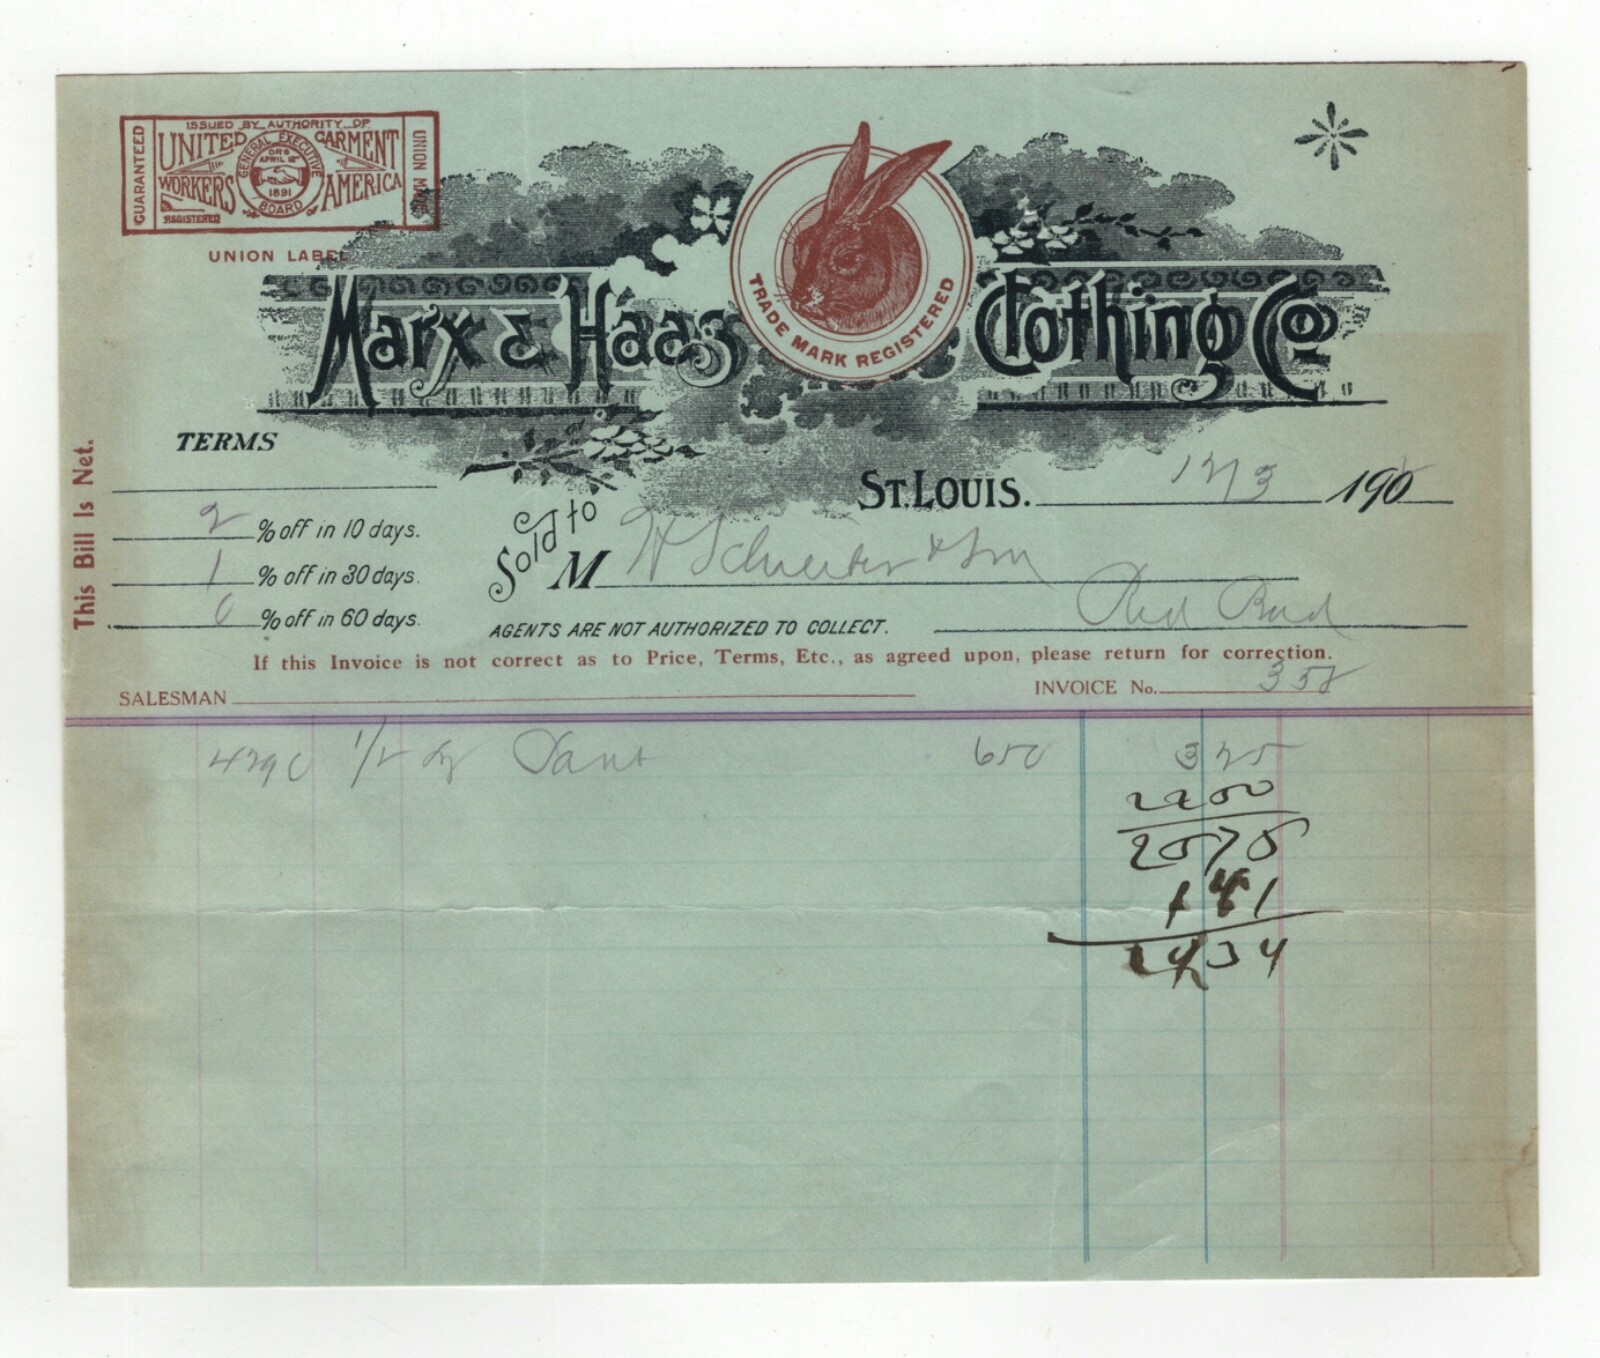 GUARANTEED
ISSUED BY AUTHORITY OF
UNITED GARMENT
WORKERS AMERICA
GENERAL EXECUTIVE BOARD
ORG APRIL 12 1891
REGISTERED
UNION MADE
UNION LABEL
Marx & Haas Clothing Co
TRADE MARK REGISTERED
TERMS
This Bill Is Net.
St. Louis. 12/3 190
2 % off in 10 days.
1 % off in 30 days.
0 % off in 60 days.
Sold to
M
& Son
Red Bud
AGENTS ARE NOT AUTHORIZED TO COLLECT.
If this Invoice is not correct as to Price, Terms, Etc., as agreed upon, please return for correction.
SALESMAN
INVOICE No. 358
4290 1/2 dz Pant 650 3 25
22 50
25 75
1 41
24 34